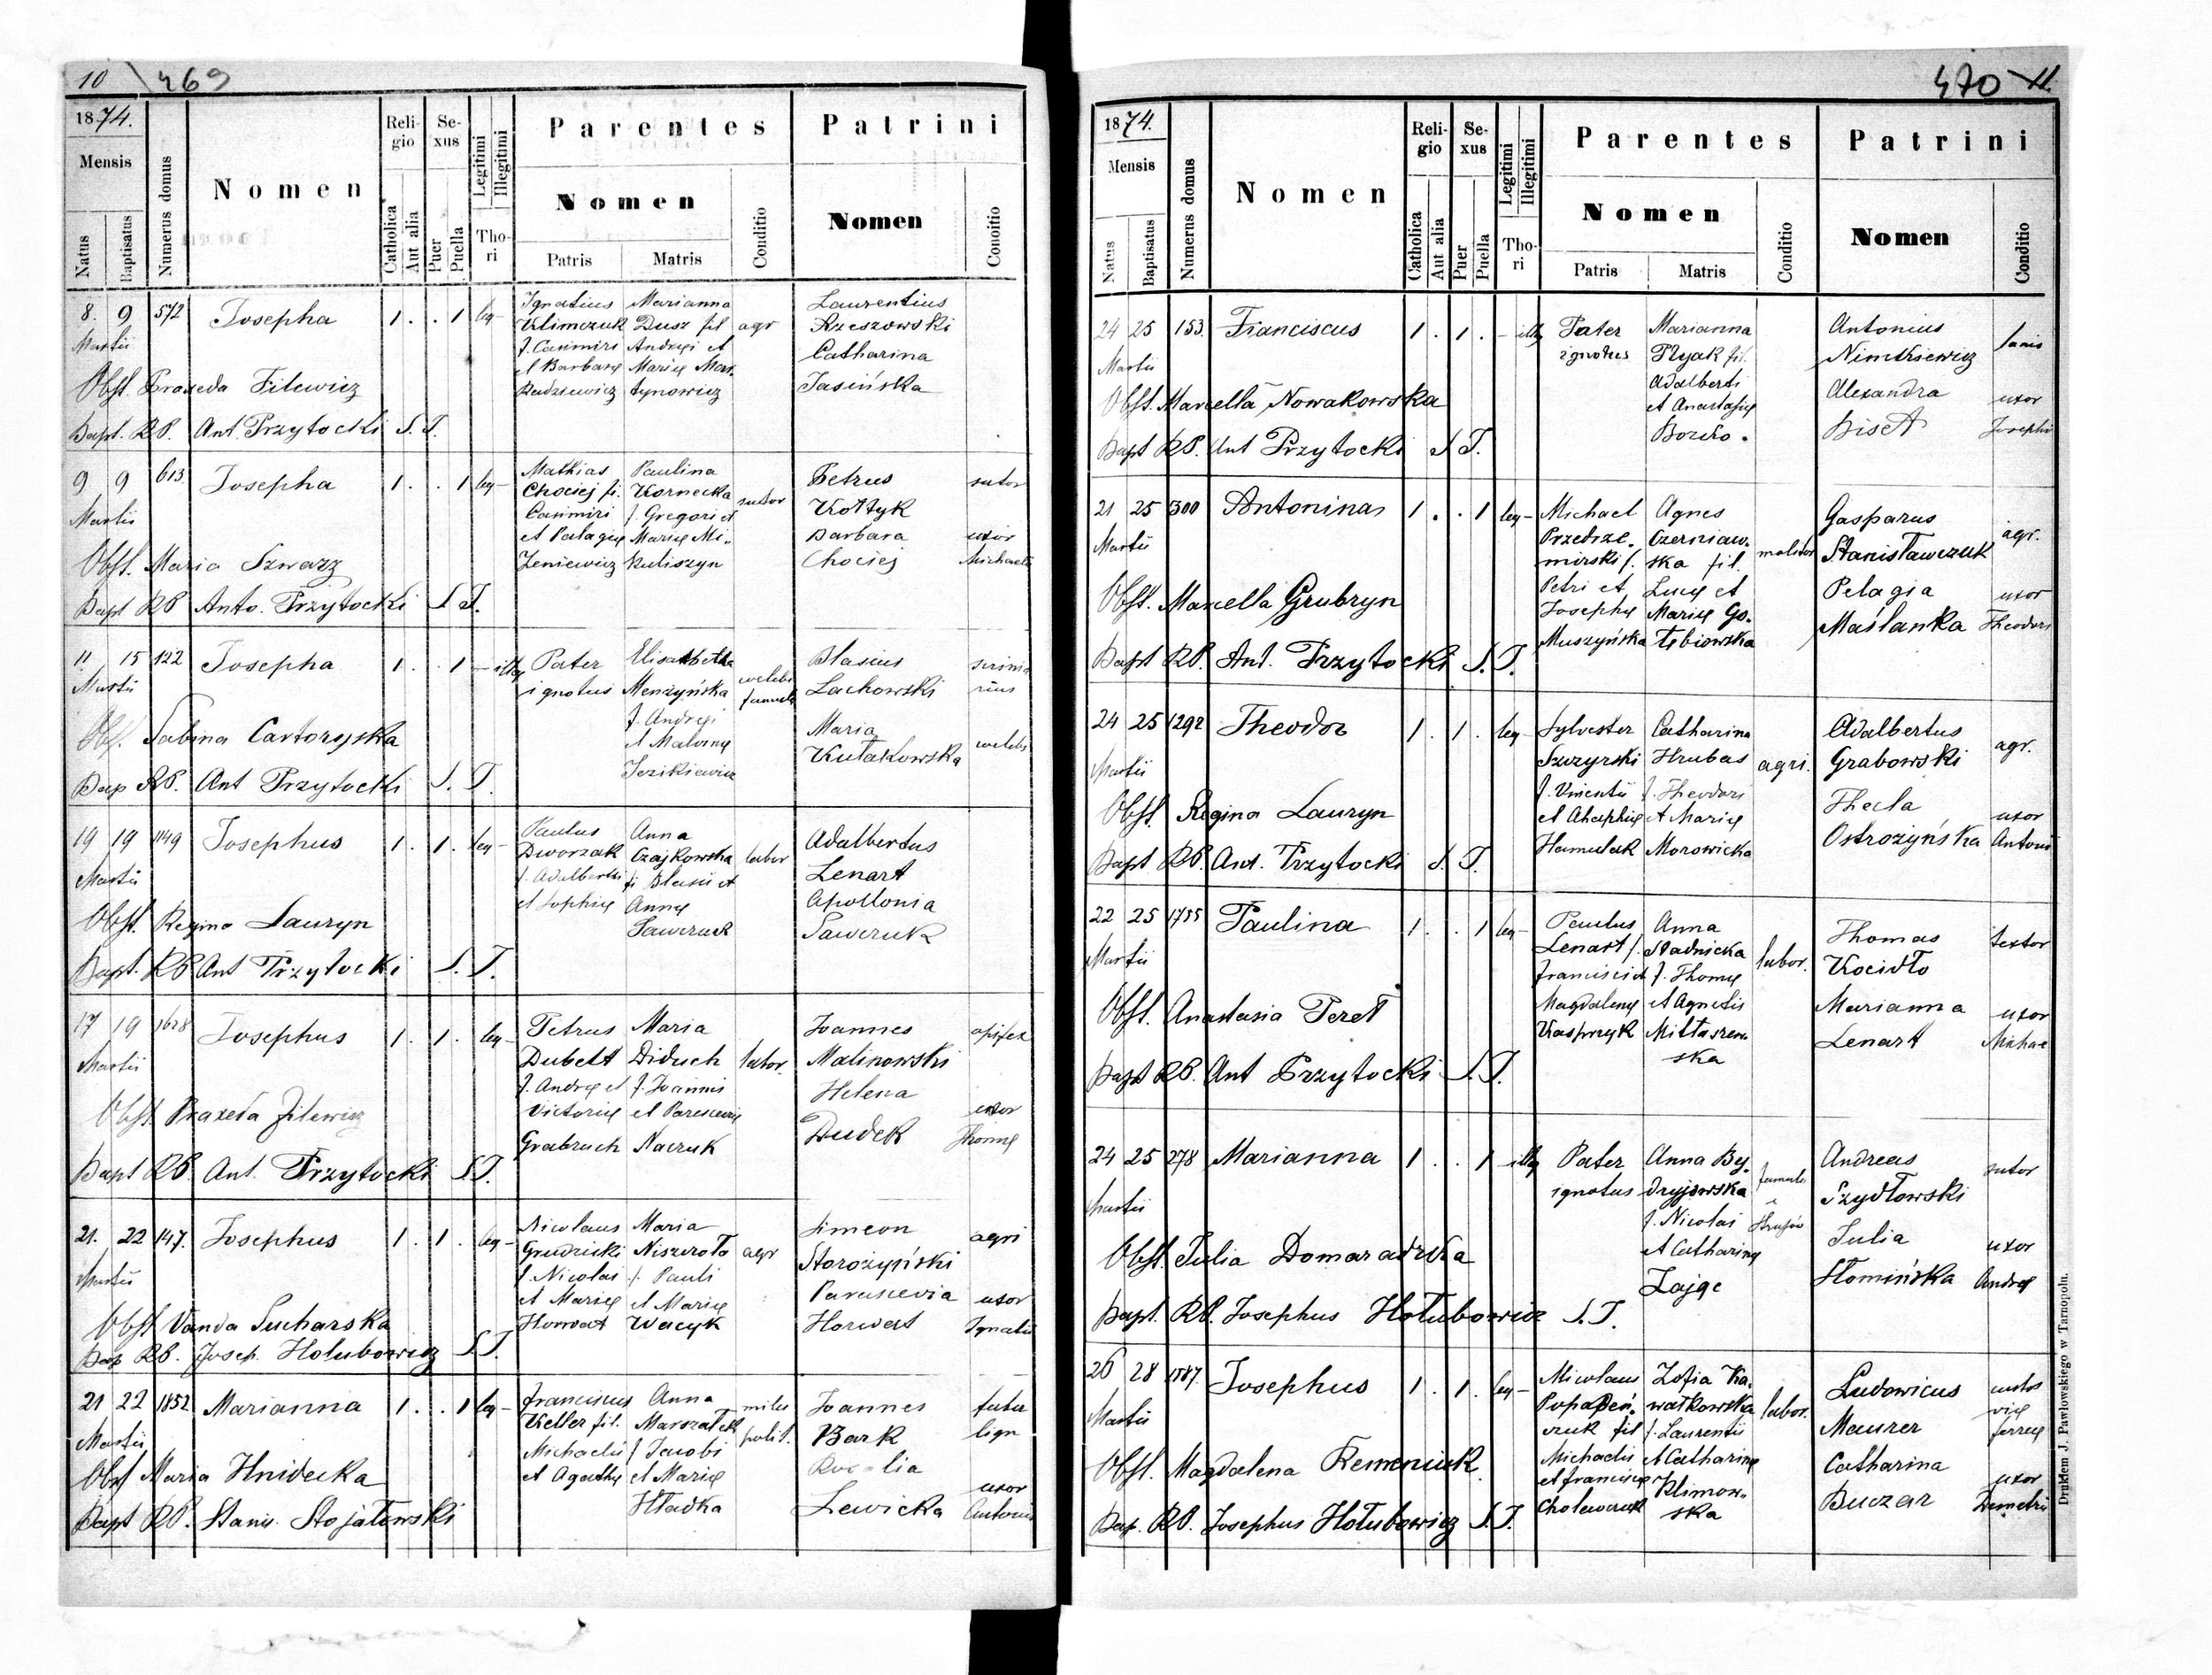 10 469
1874.
Mensis
Natus
Baptisatus
Numerus domus
Nomen
Religio
Catholica
Aut alia
Sexus
Puer
Puella
Legitimi
Illegitimi
Thori
Parentes
Nomen
Patris
Matris
Conditio
Patrini
Nomen
Conditio
8. 9 572 Josepha 1. . 1 leg-
Martii
Ignatius
Klimczuk
f. Casimiri
et Barbarę
Budziewicz
Marianna
Dusz fil
Andręi et
Marię Mar-
tynowicz
agr
Laurentius
Rzeszowski
Catharina
Jasińska
Obst. Praxeda Filewicz
Bapt. RP. Ant. Przytocki S.T.
9 9 613. Josepha 1. . 1 leg-
Martii
Mathias
Chociej fi.
Casimiri
et Pelagię
Zeniewicz
Paulina
Kornecka
f. Gregori et
Marię Mi-
kuliszyn
sutor
Petrus
Kołtyk
Barbara
Chociej
sutor
uxor
Michaeli
Obst. Maria Szwarz
Bapt RP Anto. Przytocki S.T.
11 15 122 Josepha 1. . 1 - illeg
Martii
Pater
ignotus
Elisabetha
Menżyńska
f. Andręi
et Malvinę
Jezikiewicz
celebs
famula
Blasius
Lachowski
Maria
Kułakowska
scrinia
rius
celebs
Obst. Sabina Cartoryska
Bap RP. Ant Przytocki S.T.
19 19 1149 Josephus 1. 1. leg-
Martii
Paulus
Dworzak
f. Adalberti
et Sophię
Anna
Czajkowska
fi Blasii et
Annę
Sawczuk
labor
Adalbertus
Lenart
Apollonia
Sawczuk
Obst. Regina Lauryn
Bapt. RP Ant Przytocki S.T.
17 19 1628 Josephus 1. 1. leg-
Martii
Petrus
Dubelt
f. Andrę et
Victorię
Grabruch
Maria
Diduch
f. Joannis
et Parscevię
Naczuk
labor.
Joannes
Malinowski
Helena
Dudek
opifex
uxor
Thomę
Obst Praxeda Filewicz
Bapt RP. Ant. Przytocki S.T.
21. 22 147. Josephus 1. 1. leg-
Martii
Nicolaus
Grudzicki
f. Nicolai
et Marię
Horwat
Maria
Niszczota
f. Pauli
et Marię
Wacyk
agr
Simeon
Storożyński
Parascevia
Horwat
agri
uxor
Ignatii
Obst Vanda Sucharska
Bap RP. Josep. Hołubowicz S.T.
21 22 1852 Marianna 1. . 1 leg-
Martii
Franciscus
Keller fil.
Michaelis
et Agathę
Anna
Marszałek
f Jacobi
et Marię
Hładka
miles
polit.
Joannes
Bark
Rosalia
Lewicka
faber
lign
uxor
Antonii
Obst Maria Hnidecka
Bapt RP. Stanis. Stojałowski
470 11.
1874.
Mensis
Natus
Baptisatus
Numerus domus
Nomen
Religio
Catholica
Aut alia
Sexus
Puer
Puella
Legitimi
Illegitimi
Thori
Parentes
Nomen
Patris
Matris
Conditio
Patrini
Nomen
Conditio
24 25 153. Franciscus 1. 1. - illeg
Martii
Pater
ignotus
Marianna
Ptyak fil.
Adalberti
et Anastasię
Antonius
Nimkiewicz
Alexandra
Biset
lanio
uxor
Josephi
Obst. Marcella Nowakowska
Bapt RP. Ant Przytocki S.T.
21 25 300 Antonina 1. . 1 leg-
Martii
Michael
Przedrze-
mirski f.
Petri et
Josephę
Muszyńska
Agnes
Czerniaw-
ska fil.
Lucę et
Marię Go-
łębiowska
molitor
Gasparus
Stanisławczuk
Pelagia
Maślanka
agr.
uxor
Theodori
Obst. Marcella Grubryn
Bapt RP. Ant. Przytocki S.T.
24 25 1292 Theodor 1. 1. leg-
Martii
Sylvester
Szczyrski
f. Vincentii
et Ahaphię
Hamulak
Catharina
Hrubas
f. Theodori
et Marię
Morowicka
agri.
Adalbertus
Grabowski
Thecla
Ostrożyńska
agr.
uxor
Antonii
Obst. Regina Lauryn
Bapt RP. Ant. Przytocki S.T.
22 25 1755 Paulina 1. . 1 leg-
Martii
Paulus
Lenart f.
Francisci et
Magdalenę
Kasprzyk
Anna
Stadnicka
f. Thomę
et Agnetis
Miłaszew
ska
labor.
Thomas
Kocidło
Marianna
Lenart
textor
uxor
Michae
Obst. Anastasia Peret
Bapt RP. Ant Przytocki S.T.
24 25 278 Marianna 1. . 1 illeg
Martii
Pater
ignotus
Anna By-
dryjowska
f. Nicolai
et Catharinę
Zając
famula
Andreas
Szydłowski
Julia
Słomińska
sutor
uxor
Andręi
Obst. Julia Domaradzka
Bapt. RP. Josephus Hołubowicz S.T.
26 28 1587. Josephus 1. 1. leg-
Martii
Nicolaus
czuk fil
Michaelis
et Francisce
Cholewczuk
Zofia Ka-
wałkowska
f. Laurentii
et Catharinę
Klimow-
ska
labor.
Ludowicus
Maurer
Catharina
Buczar
custos
vię
ferreę
uxor
Demetri
Obst. Magdalena Remeniuk
Bap. RP. Josephus Hołubowicz S.T.
Drukiem J. Pawłowskiego w Tarnopolu.